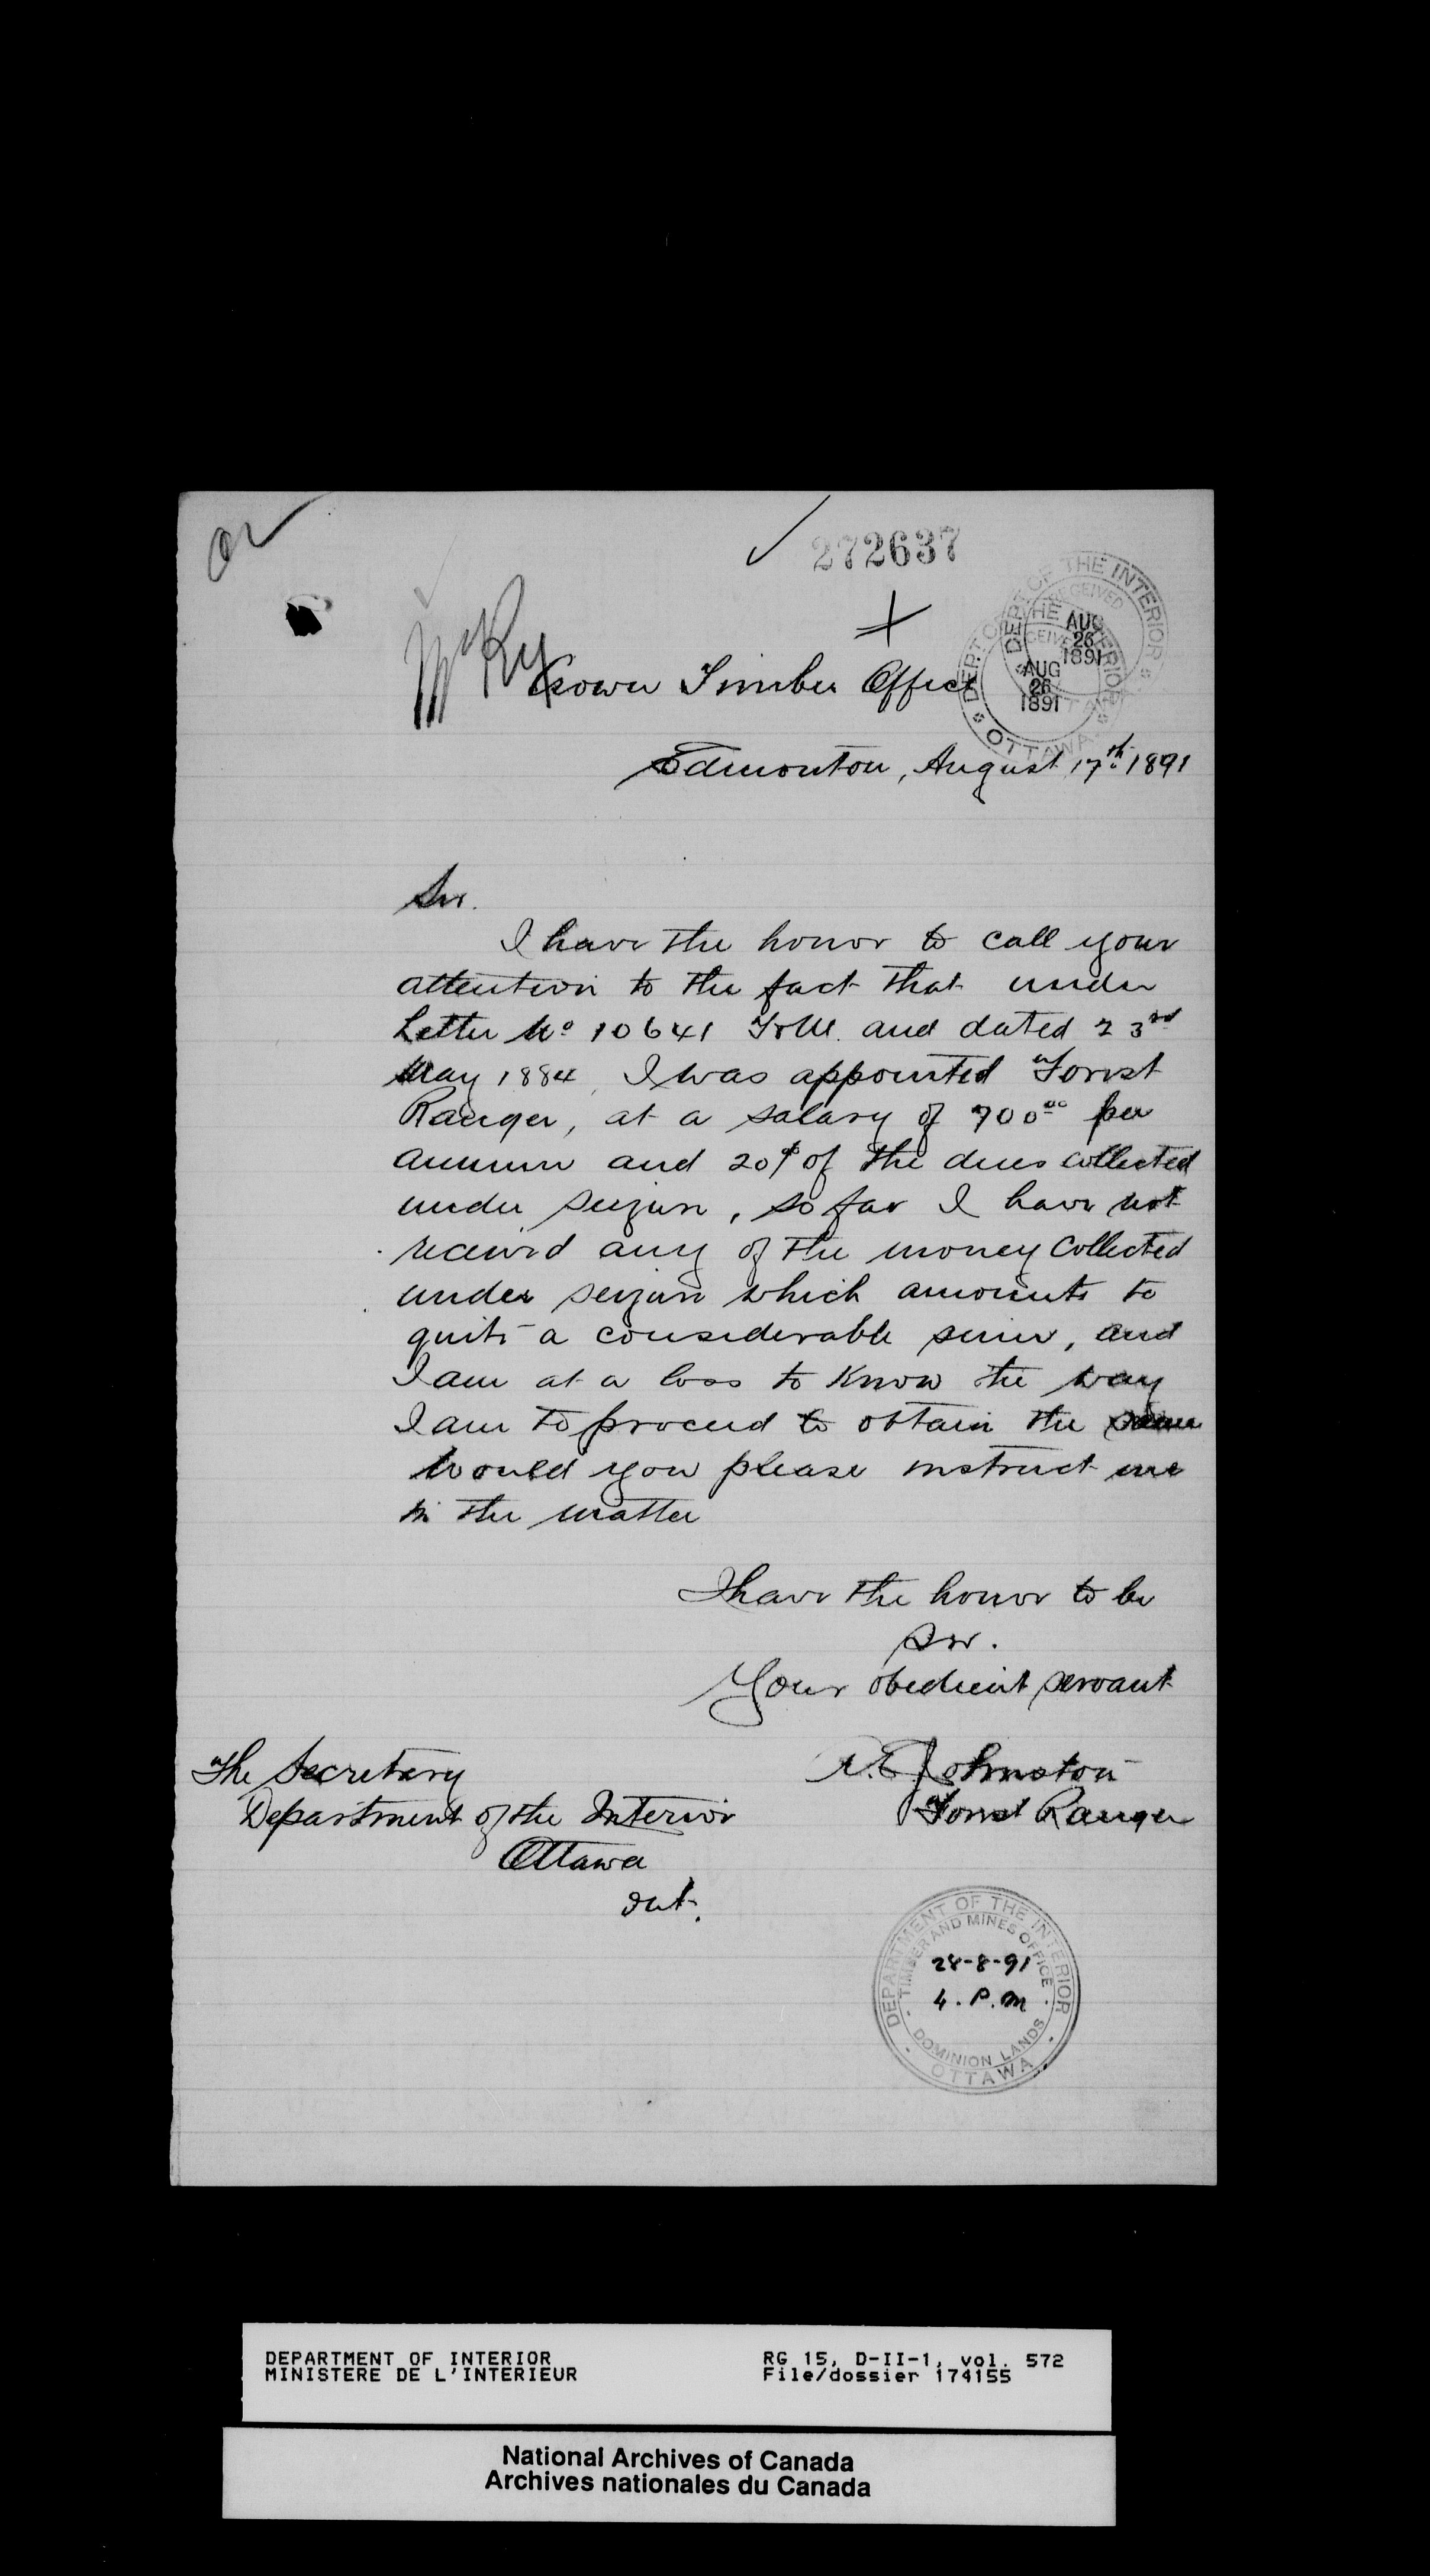 272637
DEPT OF THE INTERIOR
RECEIVED
AUG
26
1891
AUG
26
1891
OTTAWA
Crown Timber Office
Edmonton, August 17th 1891
Sir.
I have the honor to call your
attention to the fact that under
Letter No 10641 T&M. and dated 23rd
May 1884, I was appointed Forest
Ranger, at a salary of 700.00 per
annum and 20% of the dues collected
under seizure, so far I have not
received any of the money collected
under seizure which amounts to
quite a considerable sum, and
I am at a loss to know the way
I am to proceed to obtain the same
Would you please instruct me
in the matter
I have the honor to be
Sir.
Your obedient servant
Johnston
Forest Ranger
The Secretary
Department of the Interior
Ottawa
Ont.
DEPARTMENT OF THE INTERIOR
TIMBER AND MINES OFFICE
28-8-91
4. P.M
DOMINION LANDS
OTTAWA
DEPARTMENT OF INTERIOR
MINISTERE DE L'INTERIEUR
RG 15, D-II-1, vol. 572
File/dossier 174155
National Archives of Canada
Archives nationales du Canada